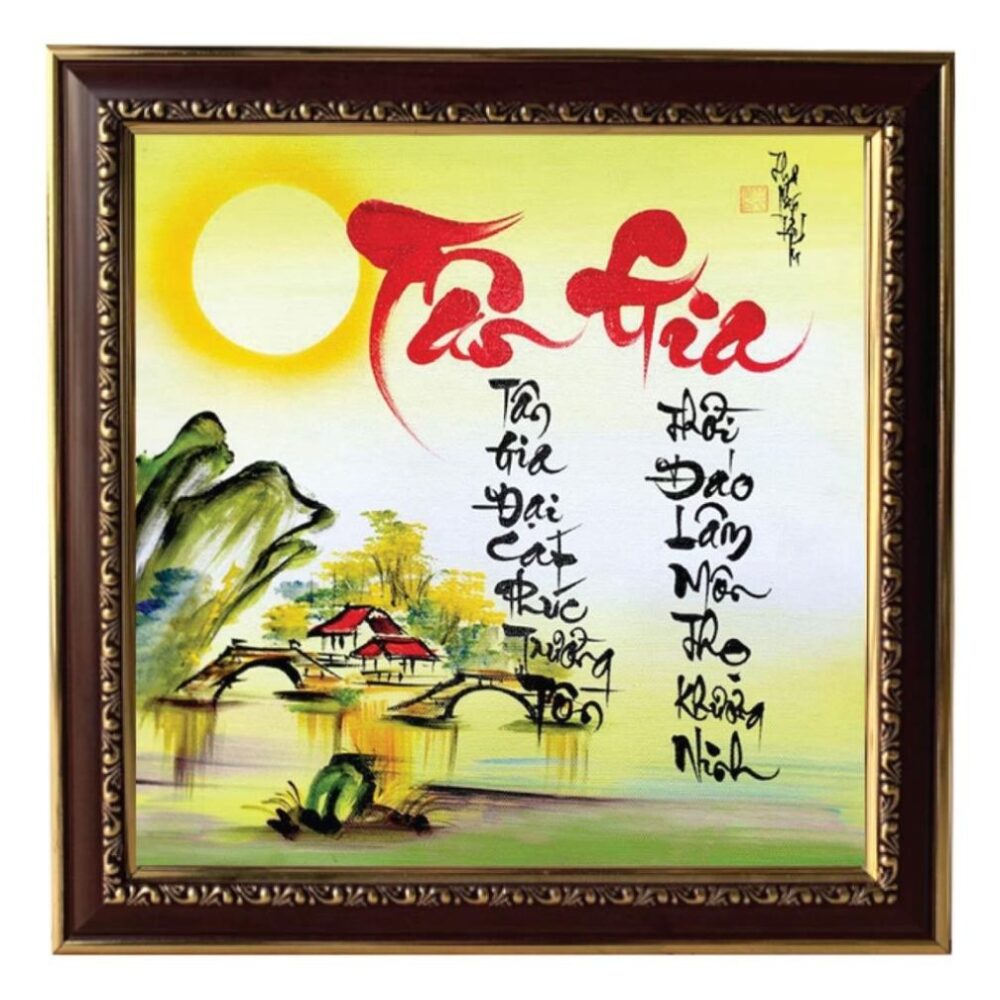 Tân Gia
Tân
Gia
Đại
Cát
Phúc
Trường
Tồn
Thời
Đáo
Lâm
Môn
Thọ
Khương
Ninh